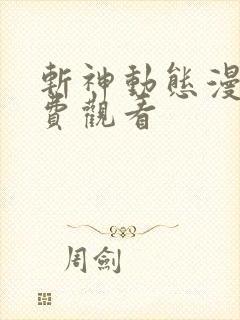 斬神動態漫
費觀看
周劍